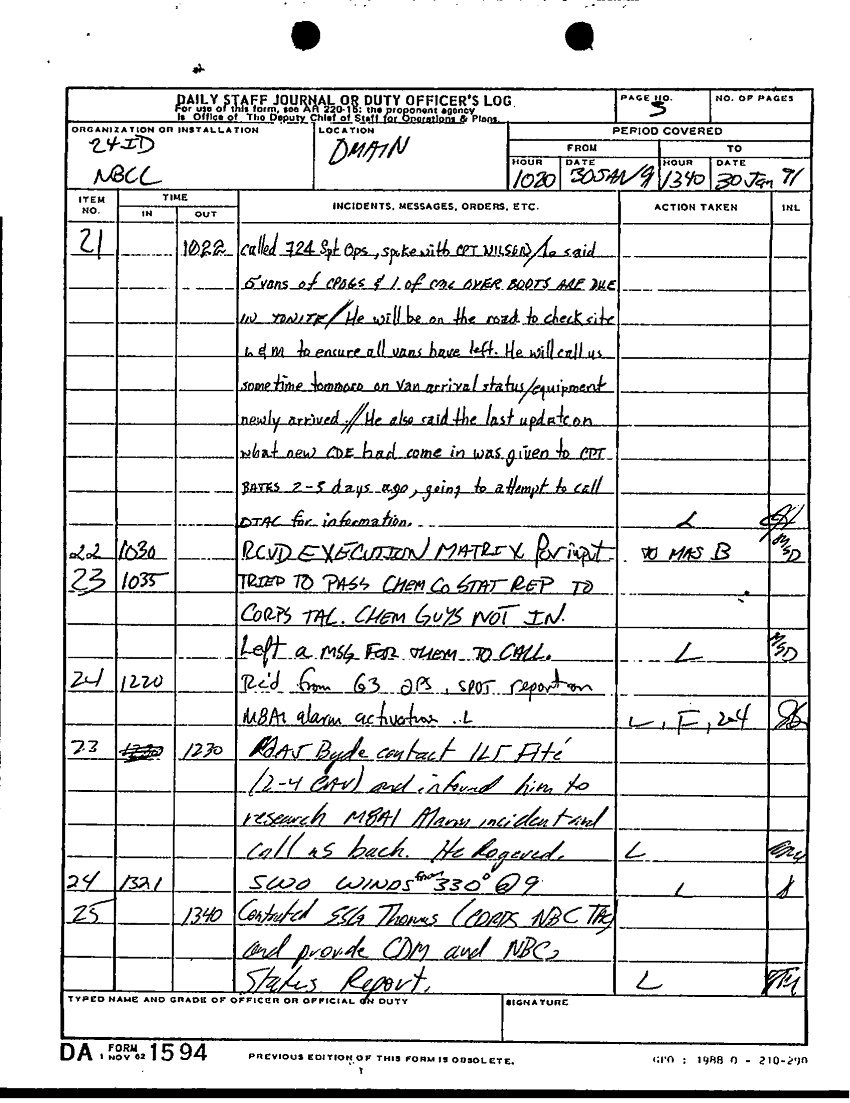 DAILY STAFF JOURNAL OR DUTY OFFICER'S LOG
For use of this form, see AR 220-15; the proponent agency
is Office of The Deputy Chief of Staff for Operations & Plans.
PAGE NO.
5
NO. OF PAGES
ORGANIZATION OR INSTALLATION
24 ID
NBCC
LOCATION
DMAIN
PERIOD COVERED
FROM
TO
HOUR
1020
DATE
30 JAN 9
HOUR
1340
DATE
30 Jan 91
ITEM NO.
TIME
IN
OUT
INCIDENTS, MESSAGES, ORDERS, ETC.
ACTION TAKEN
INL
21 1022 called 724 Spt Ops, spoke with CPT WILSON/he said
5 vans of CPOGS & 1 of OVER BOOTS ARE DUE
IN TONITE/He will be on the road to check site
L & M to ensure all vans have left. He will call us
sometime tommoro on van arrival status/equipment
newly arrived.//He also said the last update on
what new CDE had come in was given to CPT
BATES 2-3 days ago, going to attempt to call
DTAC for information. L
22 1030 RCVD EXECUTION MATRIX for input to MAS B MSD
23 1035 TRIED TO PASS CHEM CO STAT REP TO
CORPS TAC. CHEM GUYS NOT IN.
Left a MSG FOR THEM TO CALL. L MSD
24 1220 Rc'd from G3 OPS, SPOT report on
M8A1 alarm activation. L L, F, 2-4
23 1230 MAJ contact 1LT Fité
(2-4 CAV) and infound him to
research M8A1 Alarm incident and
call us back. He Rogered. L
24 1321 SWO WINDS from 330° @ 9 L
25 1340 Contacted SSG Thomas (CORPS NBC TAC)
and provide CDM and NBC
Status Report. L
TYPED NAME AND GRADE OF OFFICER OR OFFICIAL ON DUTY
SIGNATURE
DA FORM 1 NOV 62 1594
PREVIOUS EDITION OF THIS FORM IS OBSOLETE.
GPO : 1988 O - 210-290